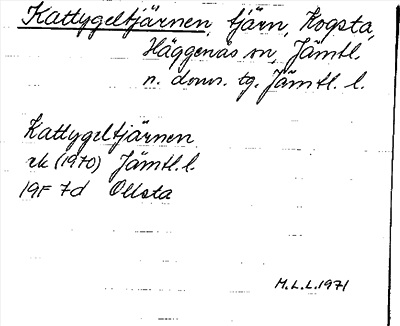 Kattygeltjärnen, tjärn, Kogsta,
Häggenås sn, Jämtl.
n. doms. tg. Jämtl. l.
Kattygeltjärnen
ek (1970) Jämtl. l.
19F 7d Ollsta
M.L.L. 1971